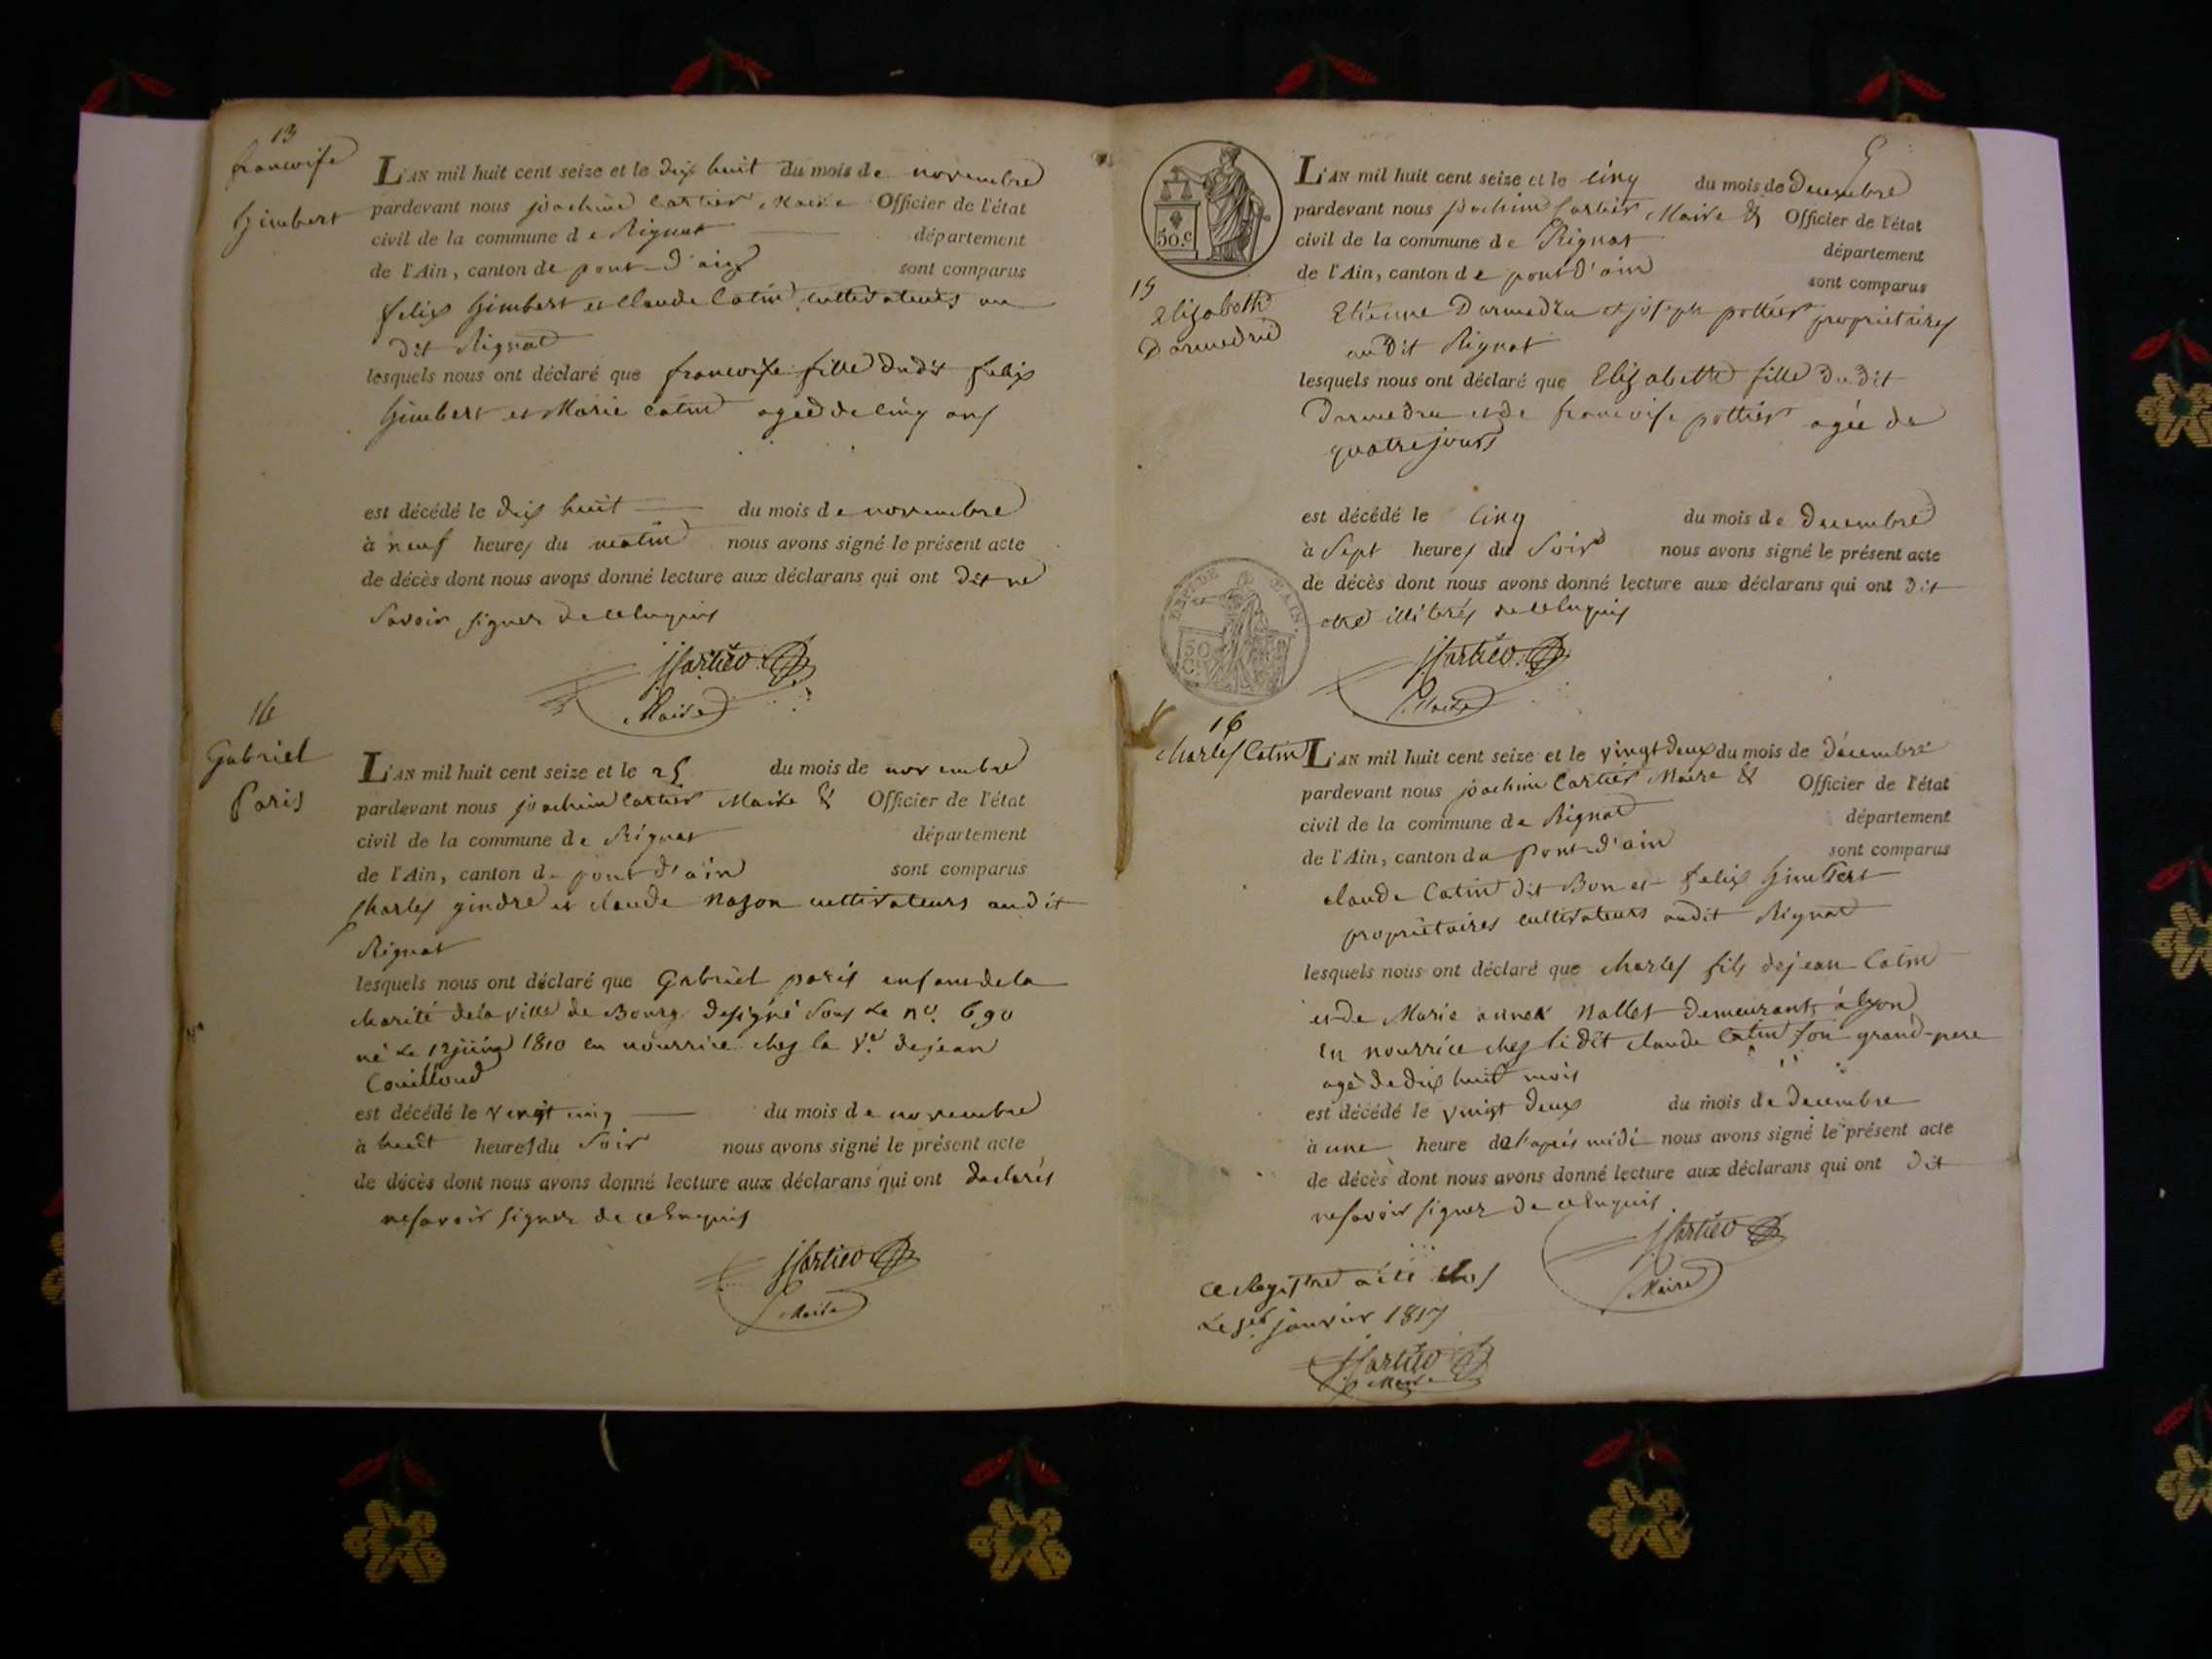 13
francoise
Gimbert
L'AN mil huit cent seize et le dix huit du mois de novembre
pardevant nous joachim Cartier Maire Officier de l'état
civil de la commune de Rignat département
de l'Ain, canton de pont-d'ain sont comparus
felix Gimbert et Claude Catin cultivateurs au
dit Rignat
lesquels nous ont déclaré que francoise fille dudit felix
Gimbert et Marie Catin agée de cinq ans
est décédé le dix huit du mois de novembre
à neuf heures du matin nous avons signé le présent acte
de décès dont nous avons donné lecture aux déclarans qui ont dit ne
savoir signer de ce enquis
JCartier
Maire
14
Gabriel
Paris
L'AN mil huit cent seize et le 25 du mois de novembre
pardevant nous joachim Cartier Maire & Officier de l'état
civil de la commune de Rignat département
de l'Ain, canton de pont d'ain sont comparus
Charles gindre et claude nason cultivateurs audit
Rignat
lesquels nous ont déclaré que Gabriel paris enfans de la
charité de la ville de Bourg désigné sous Le n°. 690
né Le 12 juin 1810 en nourrice chez la Ve. de jean
Couilloud
est décédé le vingt cinq du mois de novembre
à huit heures du soir nous avons signé le présent acte
de décès dont nous avons donné lecture aux déclarans qui ont declarés
ne savoir signer de ce enquis
JCartier
Maire
50.c
15
Elizabeth
Darmedru
L'AN mil huit cent seize et le cinq du mois de Decembre
pardevant nous joachim Cartier Maire & Officier de l'état
civil de la commune de Rignat département
de l'Ain, canton de pont d'ain sont comparus
Etienne Darmedru et joseph pottier proprietaires
au dit Rignat
lesquels nous ont déclaré que Elizabette fille du dit
Darmedru et de francoise pottier agée de
quatre jours
est décédé le cinq du mois de Decembre
à sept heures du soir nous avons signé le présent acte
de décès dont nous avons donné lecture aux déclarans qui ont dit
etre illiterés de ce enquis
DEPT DE L'AIN.
50 C.
JCartier
Maire
16
Charles Catin
L'AN mil huit cent seize et le vingt deux du mois de décembre
pardevant nous joachim Cartier Maire & Officier de l'état
civil de la commune de Rignat département
de l'Ain, canton de pont-d'ain sont comparus
claude Catin dit Bon et felix Gimbert
proprietaires cultivateurs audit Rignat
lesquels nous ont déclaré que charles fils de jean Catin
et de Marie anne Nallet demeurant à lyon
en nourrice chez le dit claude Catin son grand-pere
agé de dix huit mois
est décédé le vingt deux du mois de decembre
à une heure de l'après midi nous avons signé le présent acte
de décès dont nous avons donné lecture aux déclarans qui ont dit
ne savoir signer de ce enquis
JCartier
Maire
ce Registre a été clos
Le 1er janvier 1817
JCartier
Maire